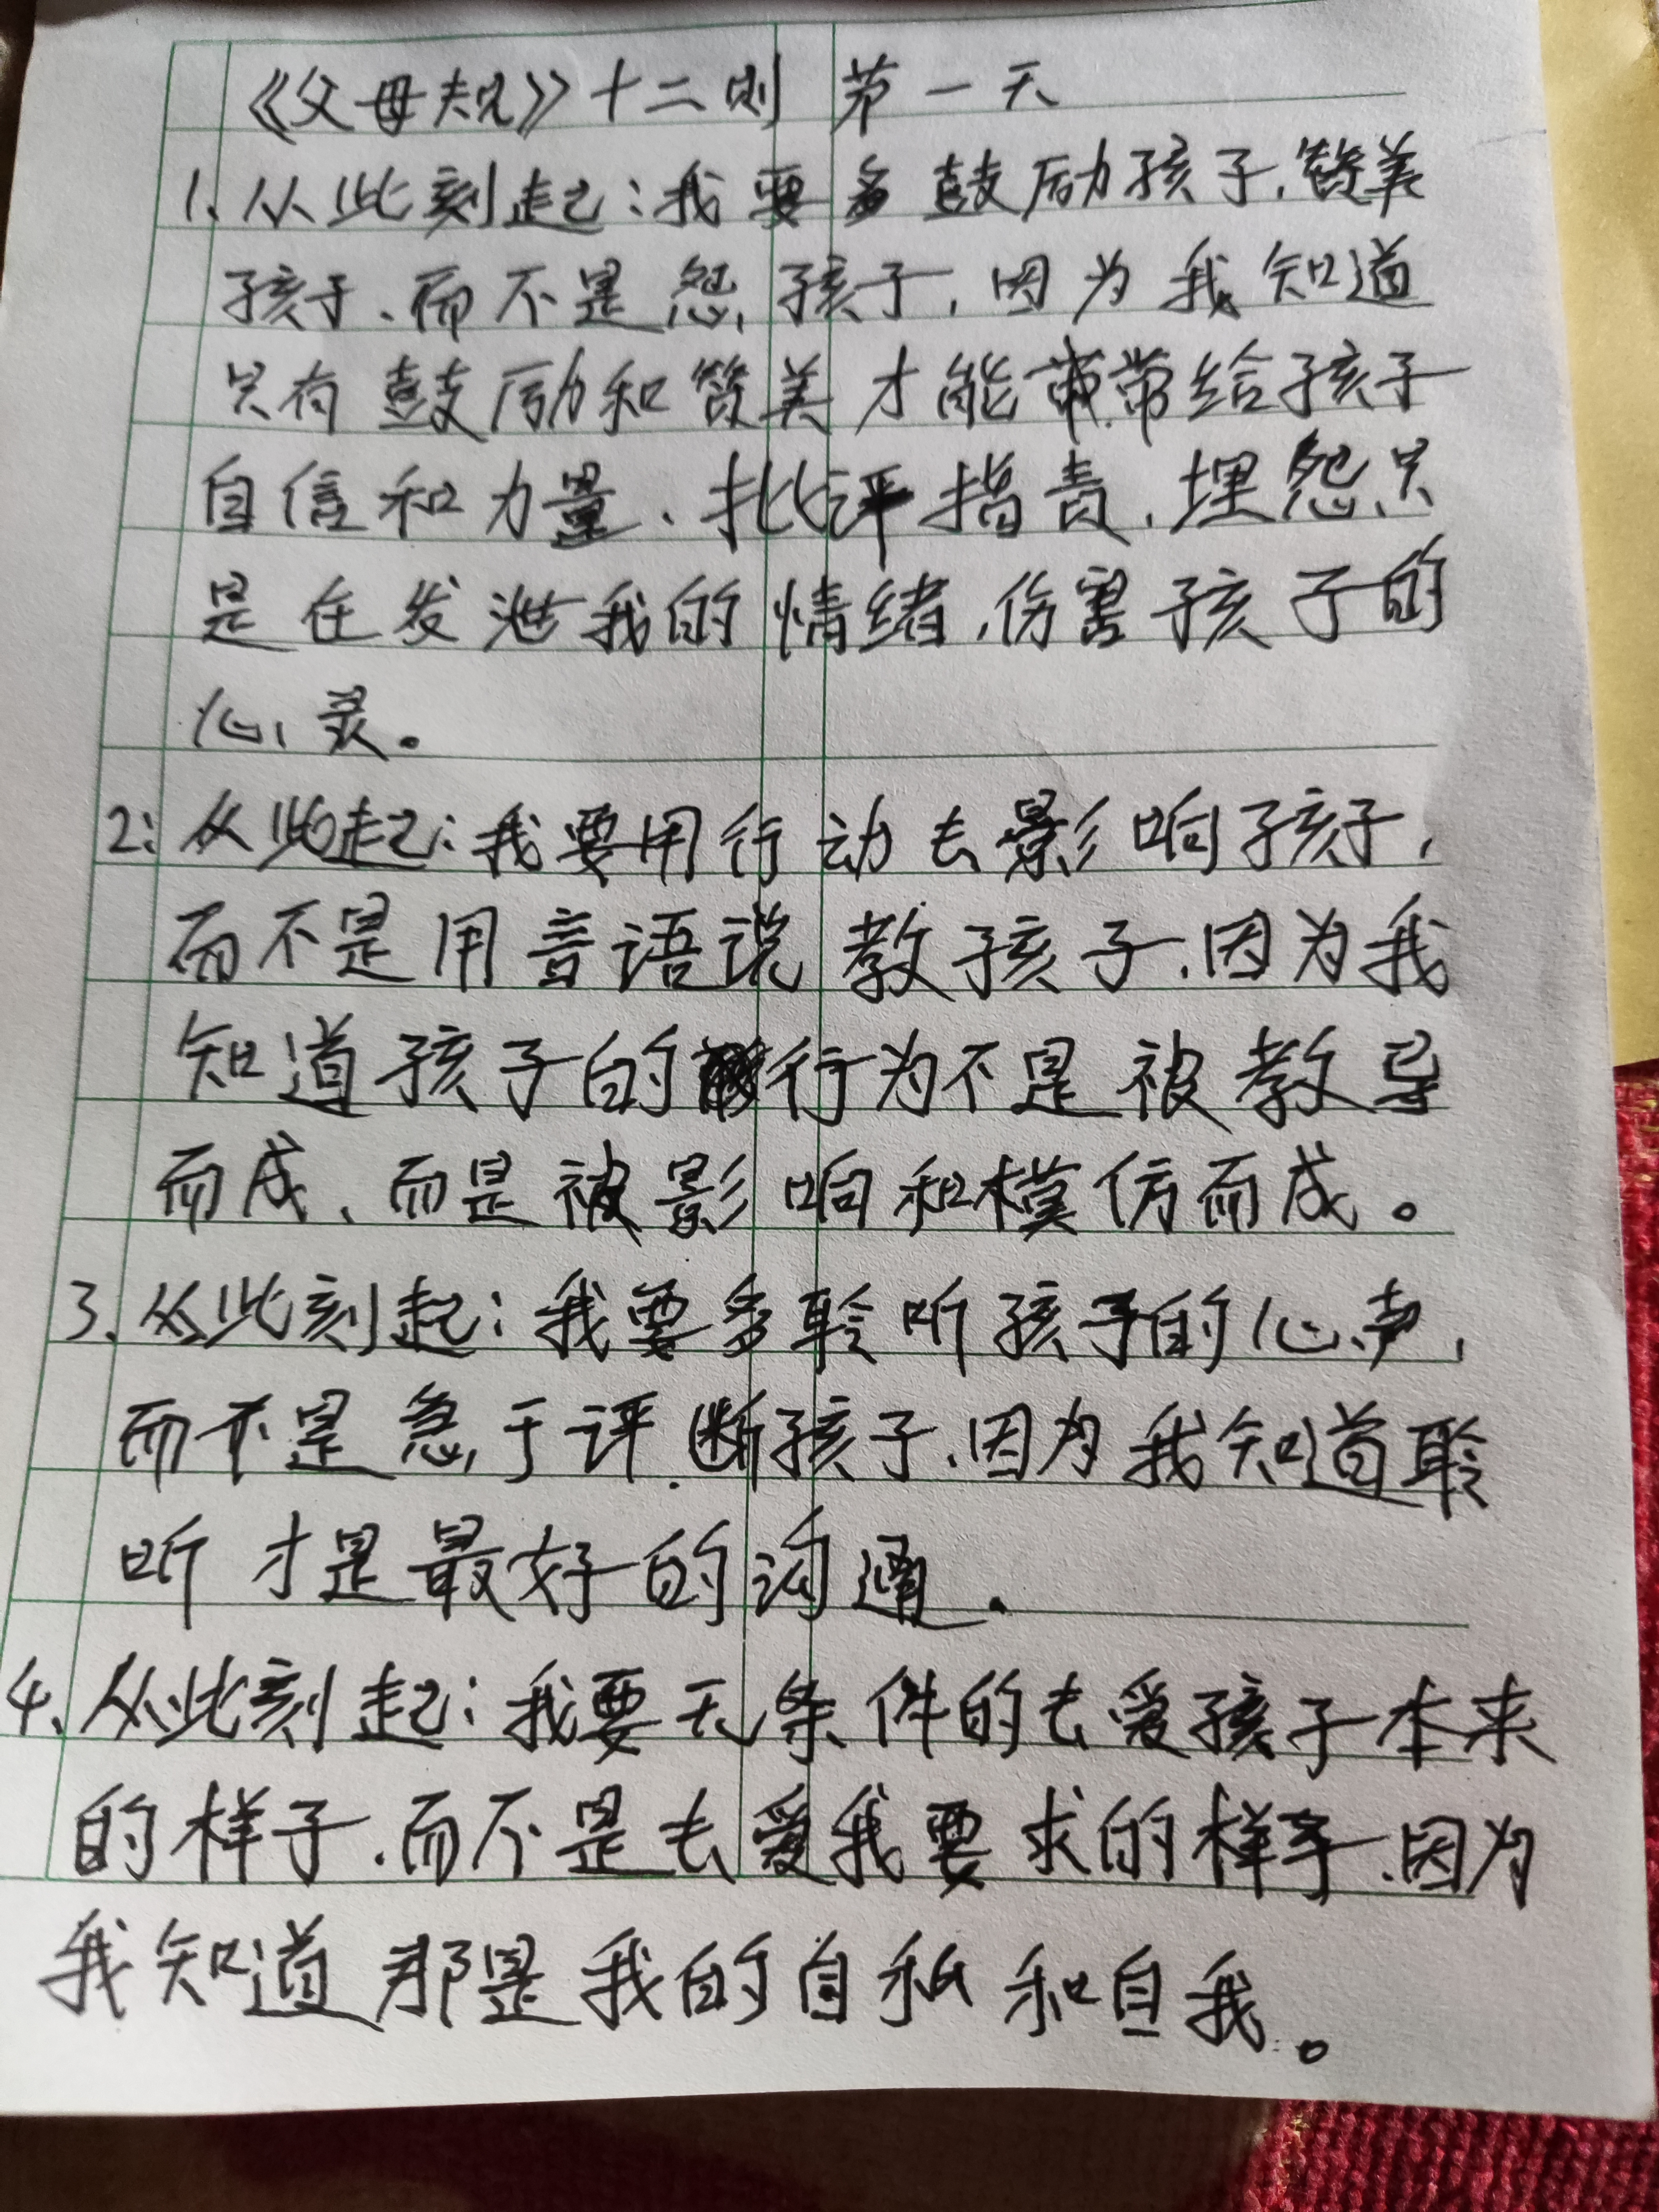 《父母规》十二则 第一天
1、从此刻起：我要多鼓励孩子，赞美
孩子、而不是怨孩子，因为我知道
只有鼓励和赞美才能带给孩子
自信和力量、批评指责，埋怨只
是在发泄我的情绪，伤害孩子的
心灵。
2：从此起：我要用行动去影响孩子，
而不是用言语说教孩子，因为我
知道孩子的行为不是被教导
而成、而是被影响和模仿而成。
3、从此刻起：我要多聆听孩子的心声，
而不是急于评断孩子，因为我知道聆
听才是最好的沟通。
4、从此刻起：我要无条件的去爱孩子本来
的样子，而不是去爱我要求的样子，因为
我知道那是我的自私和自我。